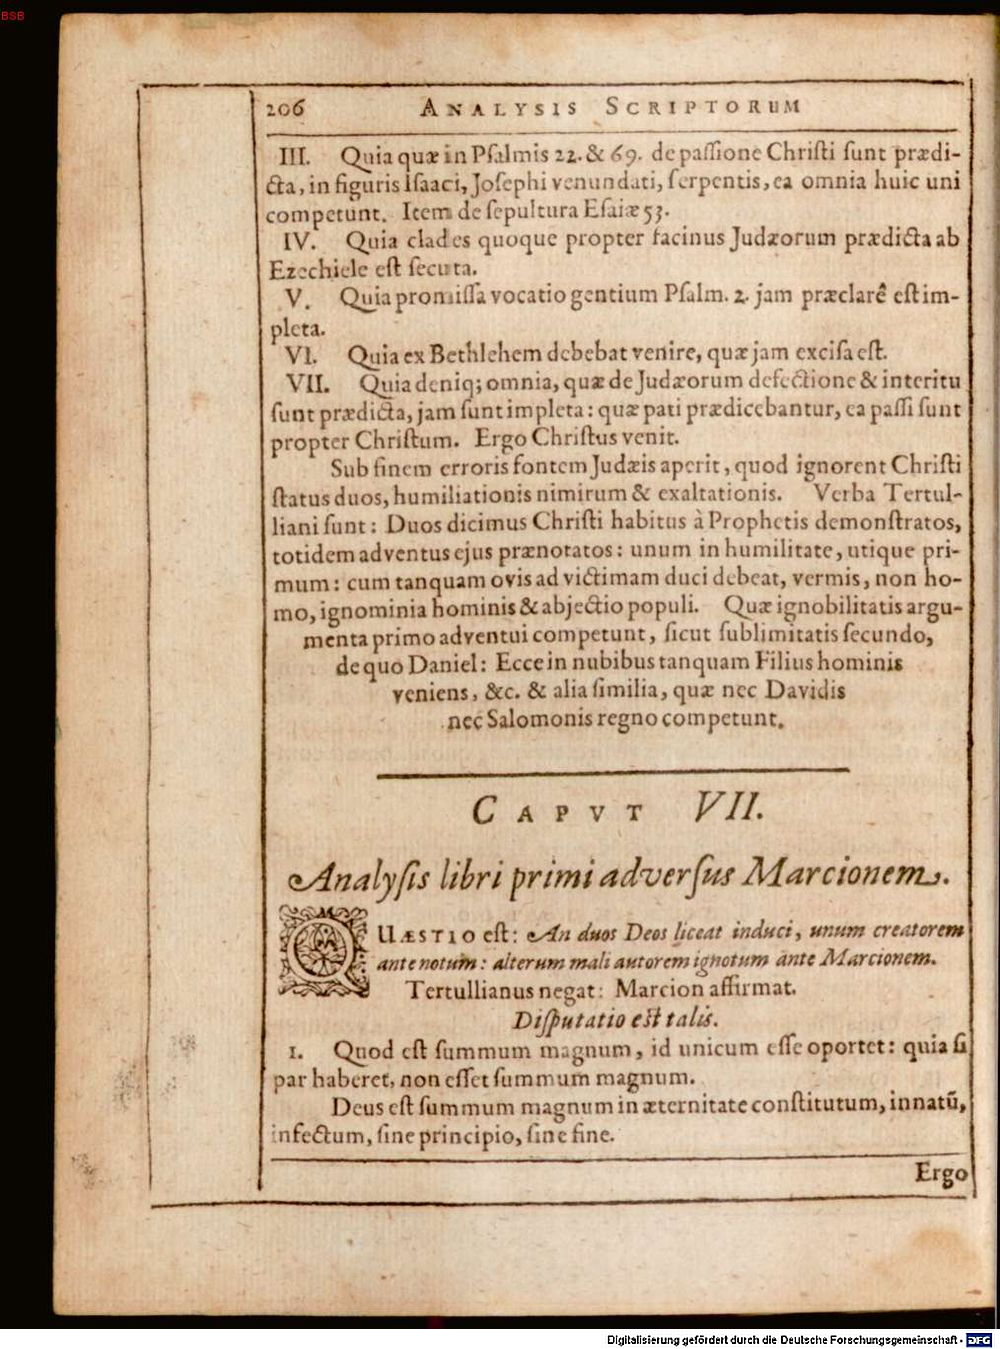 BSB
206 ANALYSIS SCRIPTORUM
III. Quia quæ in Psalmis 22. & 69. de passione Christi sunt prædi-
cta, in figuris Isaaci, Josephi venundati, serpentis, ea omnia huic uni
competunt. Item de sepultura Esaiæ 53.
IV. Quia clades quoque propter facinus Judæorum prædicta ab
Ezechiele est secuta.
V. Quia promissa vocatio gentium Psalm. 2. jam præclarê est im-
pleta.
VI. Quia ex Bethlehem debebat venire, quæ jam excisa est.
VII. Quia deniq; omnia, quæ de Judæorum defectione & interitu
sunt prædicta, jam sunt impleta: quæ pati prædicebantur, ea passi sunt
propter Christum. Ergo Christus venit.
Sub finem erroris fontem Judæis aperit, quod ignorent Christi
status duos, humiliationis nimirum & exaltationis. Verba Tertul-
liani sunt: Duos dicimus Christi habitus à Prophetis demonstratos,
totidem adventus ejus prænotatos: unum in humilitate, utique pri-
mum: cum tanquam ovis ad victimam duci debeat, vermis, non ho-
mo, ignominia hominis & abjectio populi. Quæ ignobilitatis argu-
menta primo adventui competunt, sicut sublimitatis secundo,
de quo Daniel: Ecce in nubibus tanquam Filius hominis
veniens, &c. & alia similia, quæ nec Davidis
nec Salomonis regno competunt.
CAPVT VII.
Analysis libri primi adversus Marcionem.
QUÆSTIO est: An duos Deos liceat induci, unum creatorem
ante notum: alterum mali autorem ignotum ante Marcionem.
Tertullianus negat: Marcion affirmat.
Disputatio est talis.
1. Quod est summum magnum, id unicum esse oportet: quia si
par haberet, non esset summum magnum.
Deus est summum magnum in æternitate constitutum, innatũ,
infectum, sine principio, sine fine.
Ergo
Digitalisierung gefördert durch die Deutsche Forschungsgemeinschaft - DFG